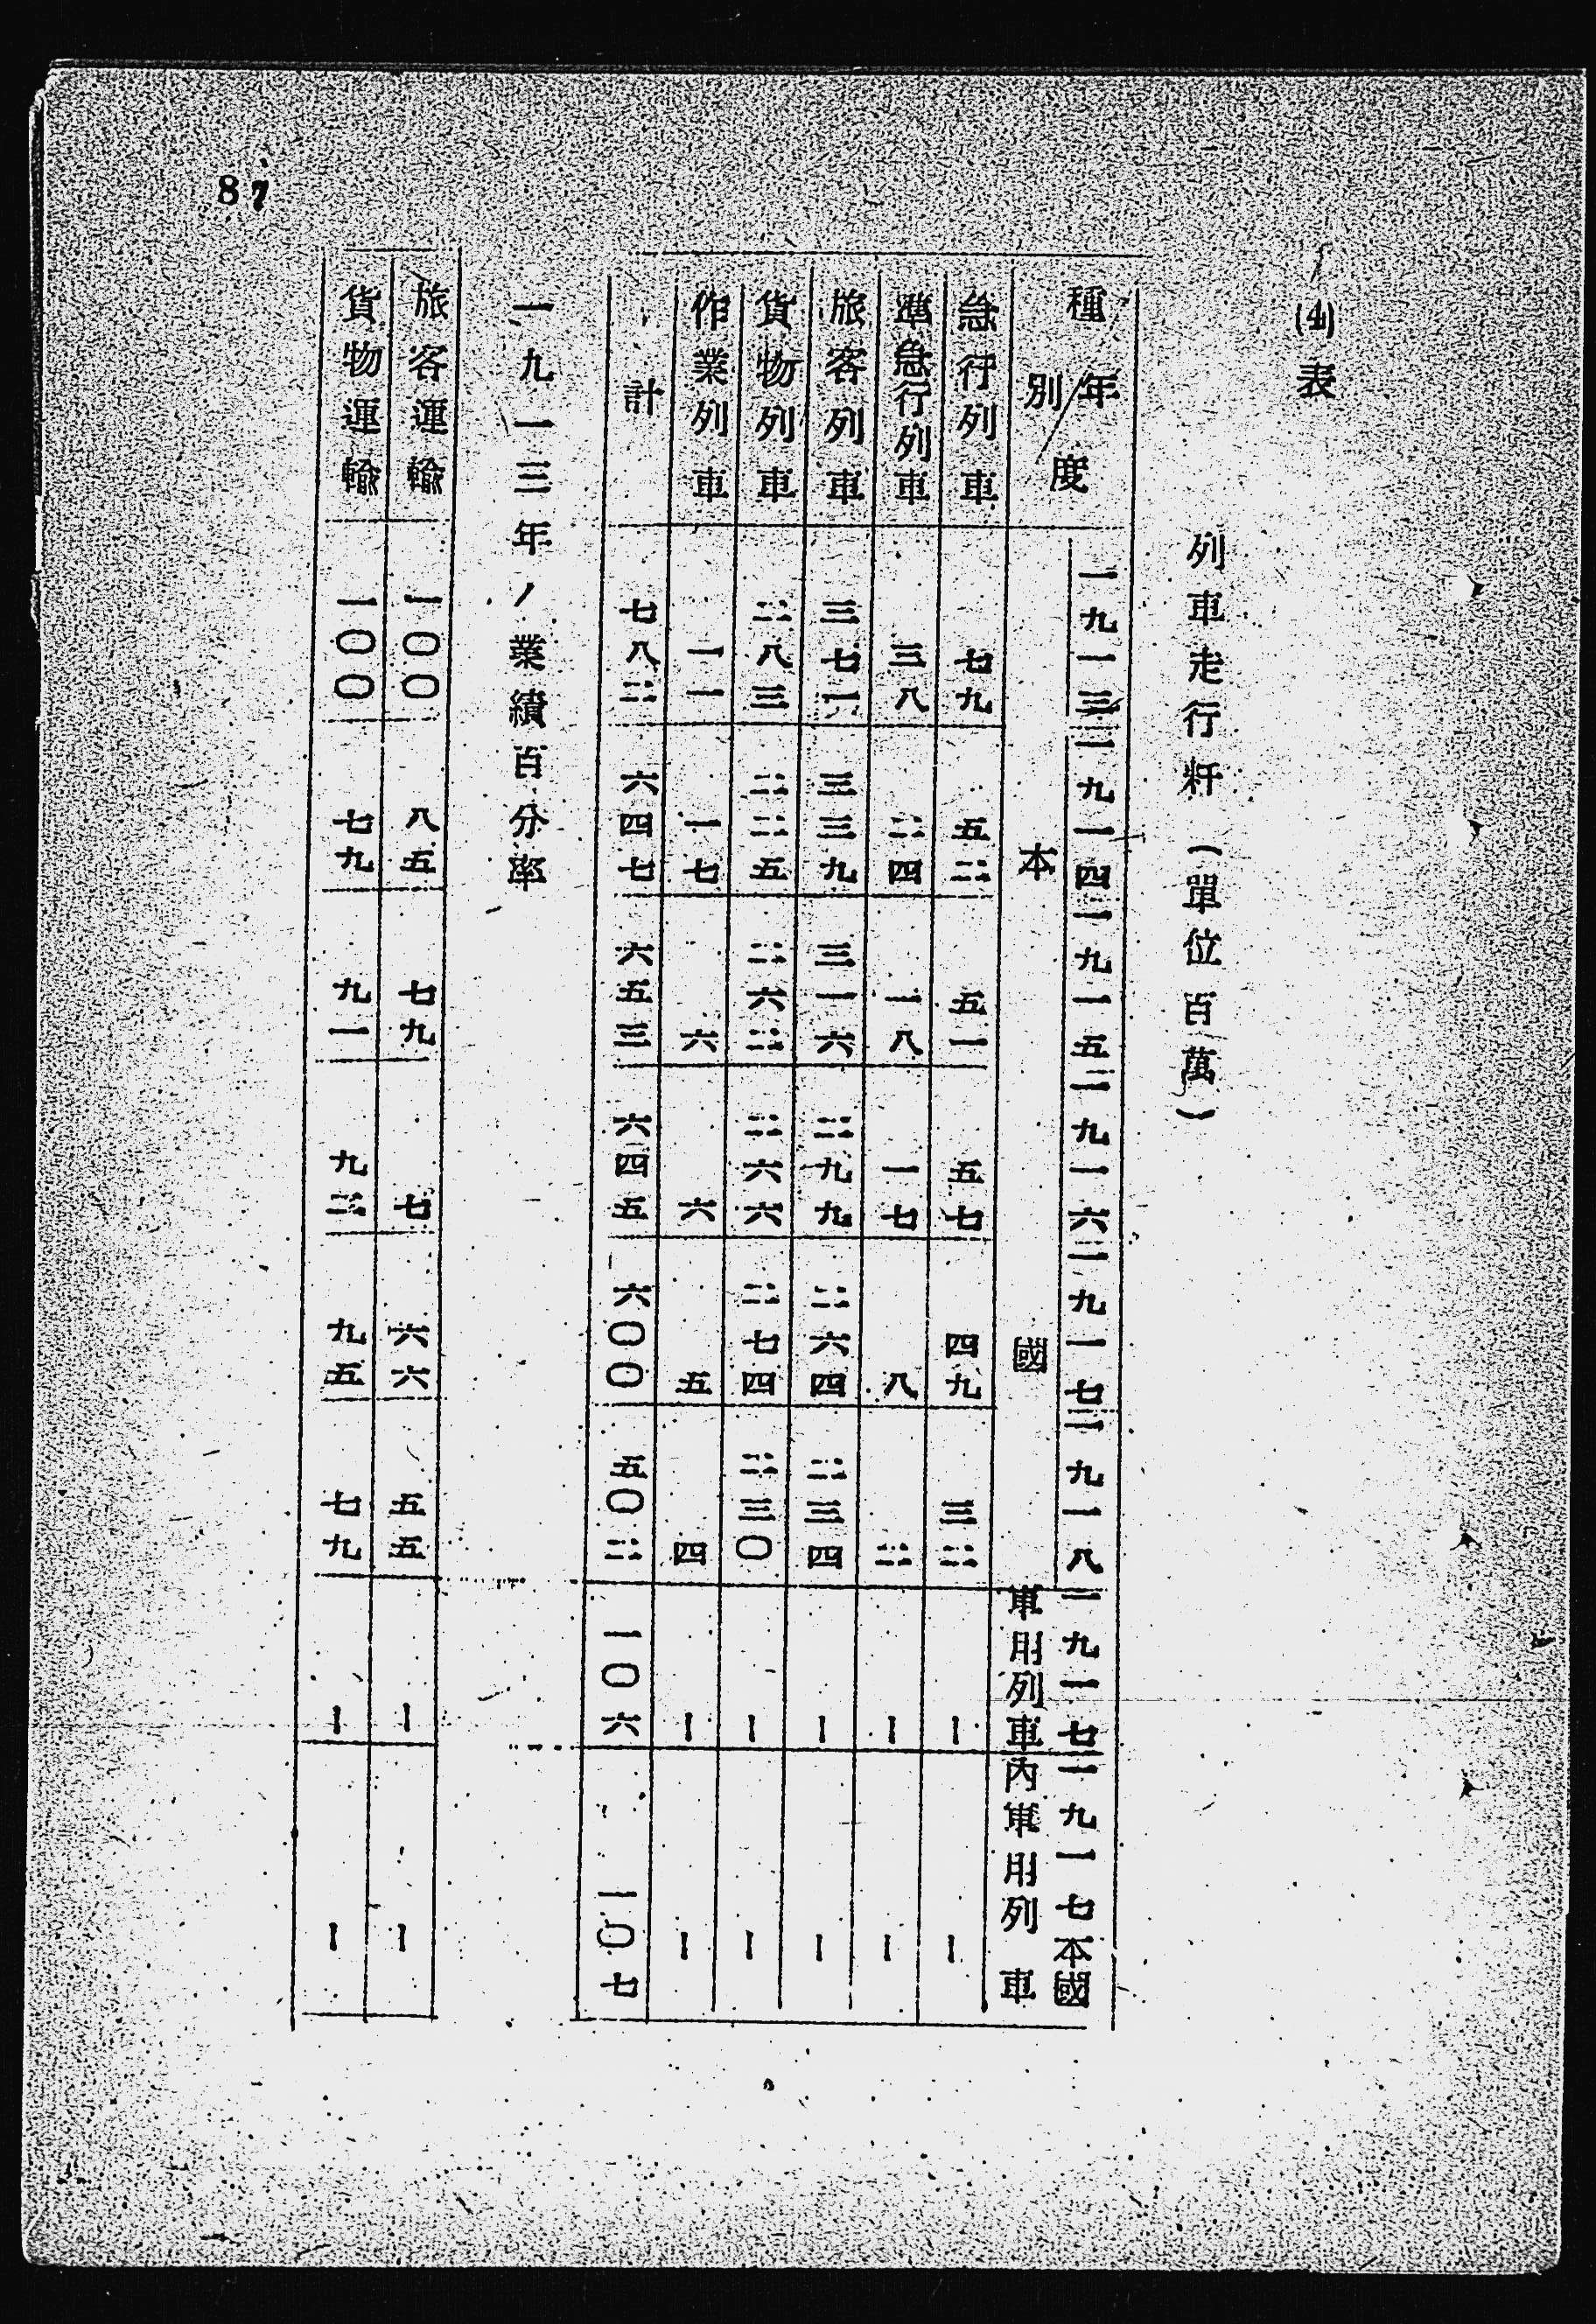 (4)表
列車走行粁(單位百萬)
年度 一九一三 一九一四 一九一五 一九一六 一九一七 一九一八 一九一七 一九一七本國
種別 本國 軍用列車 內軍用列車
急行列車 七九 五二 五一 五七 四九 三二 ー ー
準急行列車 三八 二四 一八 一七 八 二 ー ー
旅客列車 三七一 三三九 三一六 二九九 二六四 二三四 ー ー
貨物列車 二八三 二二五 二六二 二六六 二七四 二三〇 ー ー
作業列車 一一 一七 六 六 五 四 ー ー
計 七八二 六四七 六五三 六四五 六〇〇 五〇二 一〇六 一〇七
一九一三年ノ業績百分率
旅客運輸 一〇〇 八五 七九 七 六六 五五 ー ー
貨物運輸 一〇〇 七九 九一 九三 九五 七九 ー ー
87